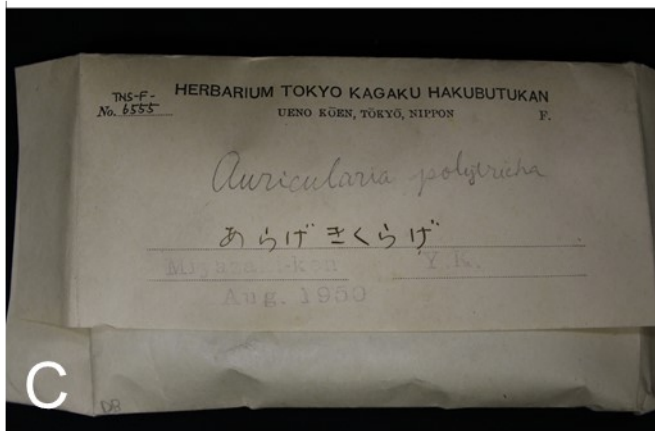 TNS-F-
HERBARIUM TOKYO KAGAKU HAKUBUTUKAN
No. 6555
UENO KŌEN, TŌKYŌ, NIPPON F.
Auricularia polytricha
あらげきくらげ
Miyazaki-ken Y.K.
Aug. 1950
C
DB